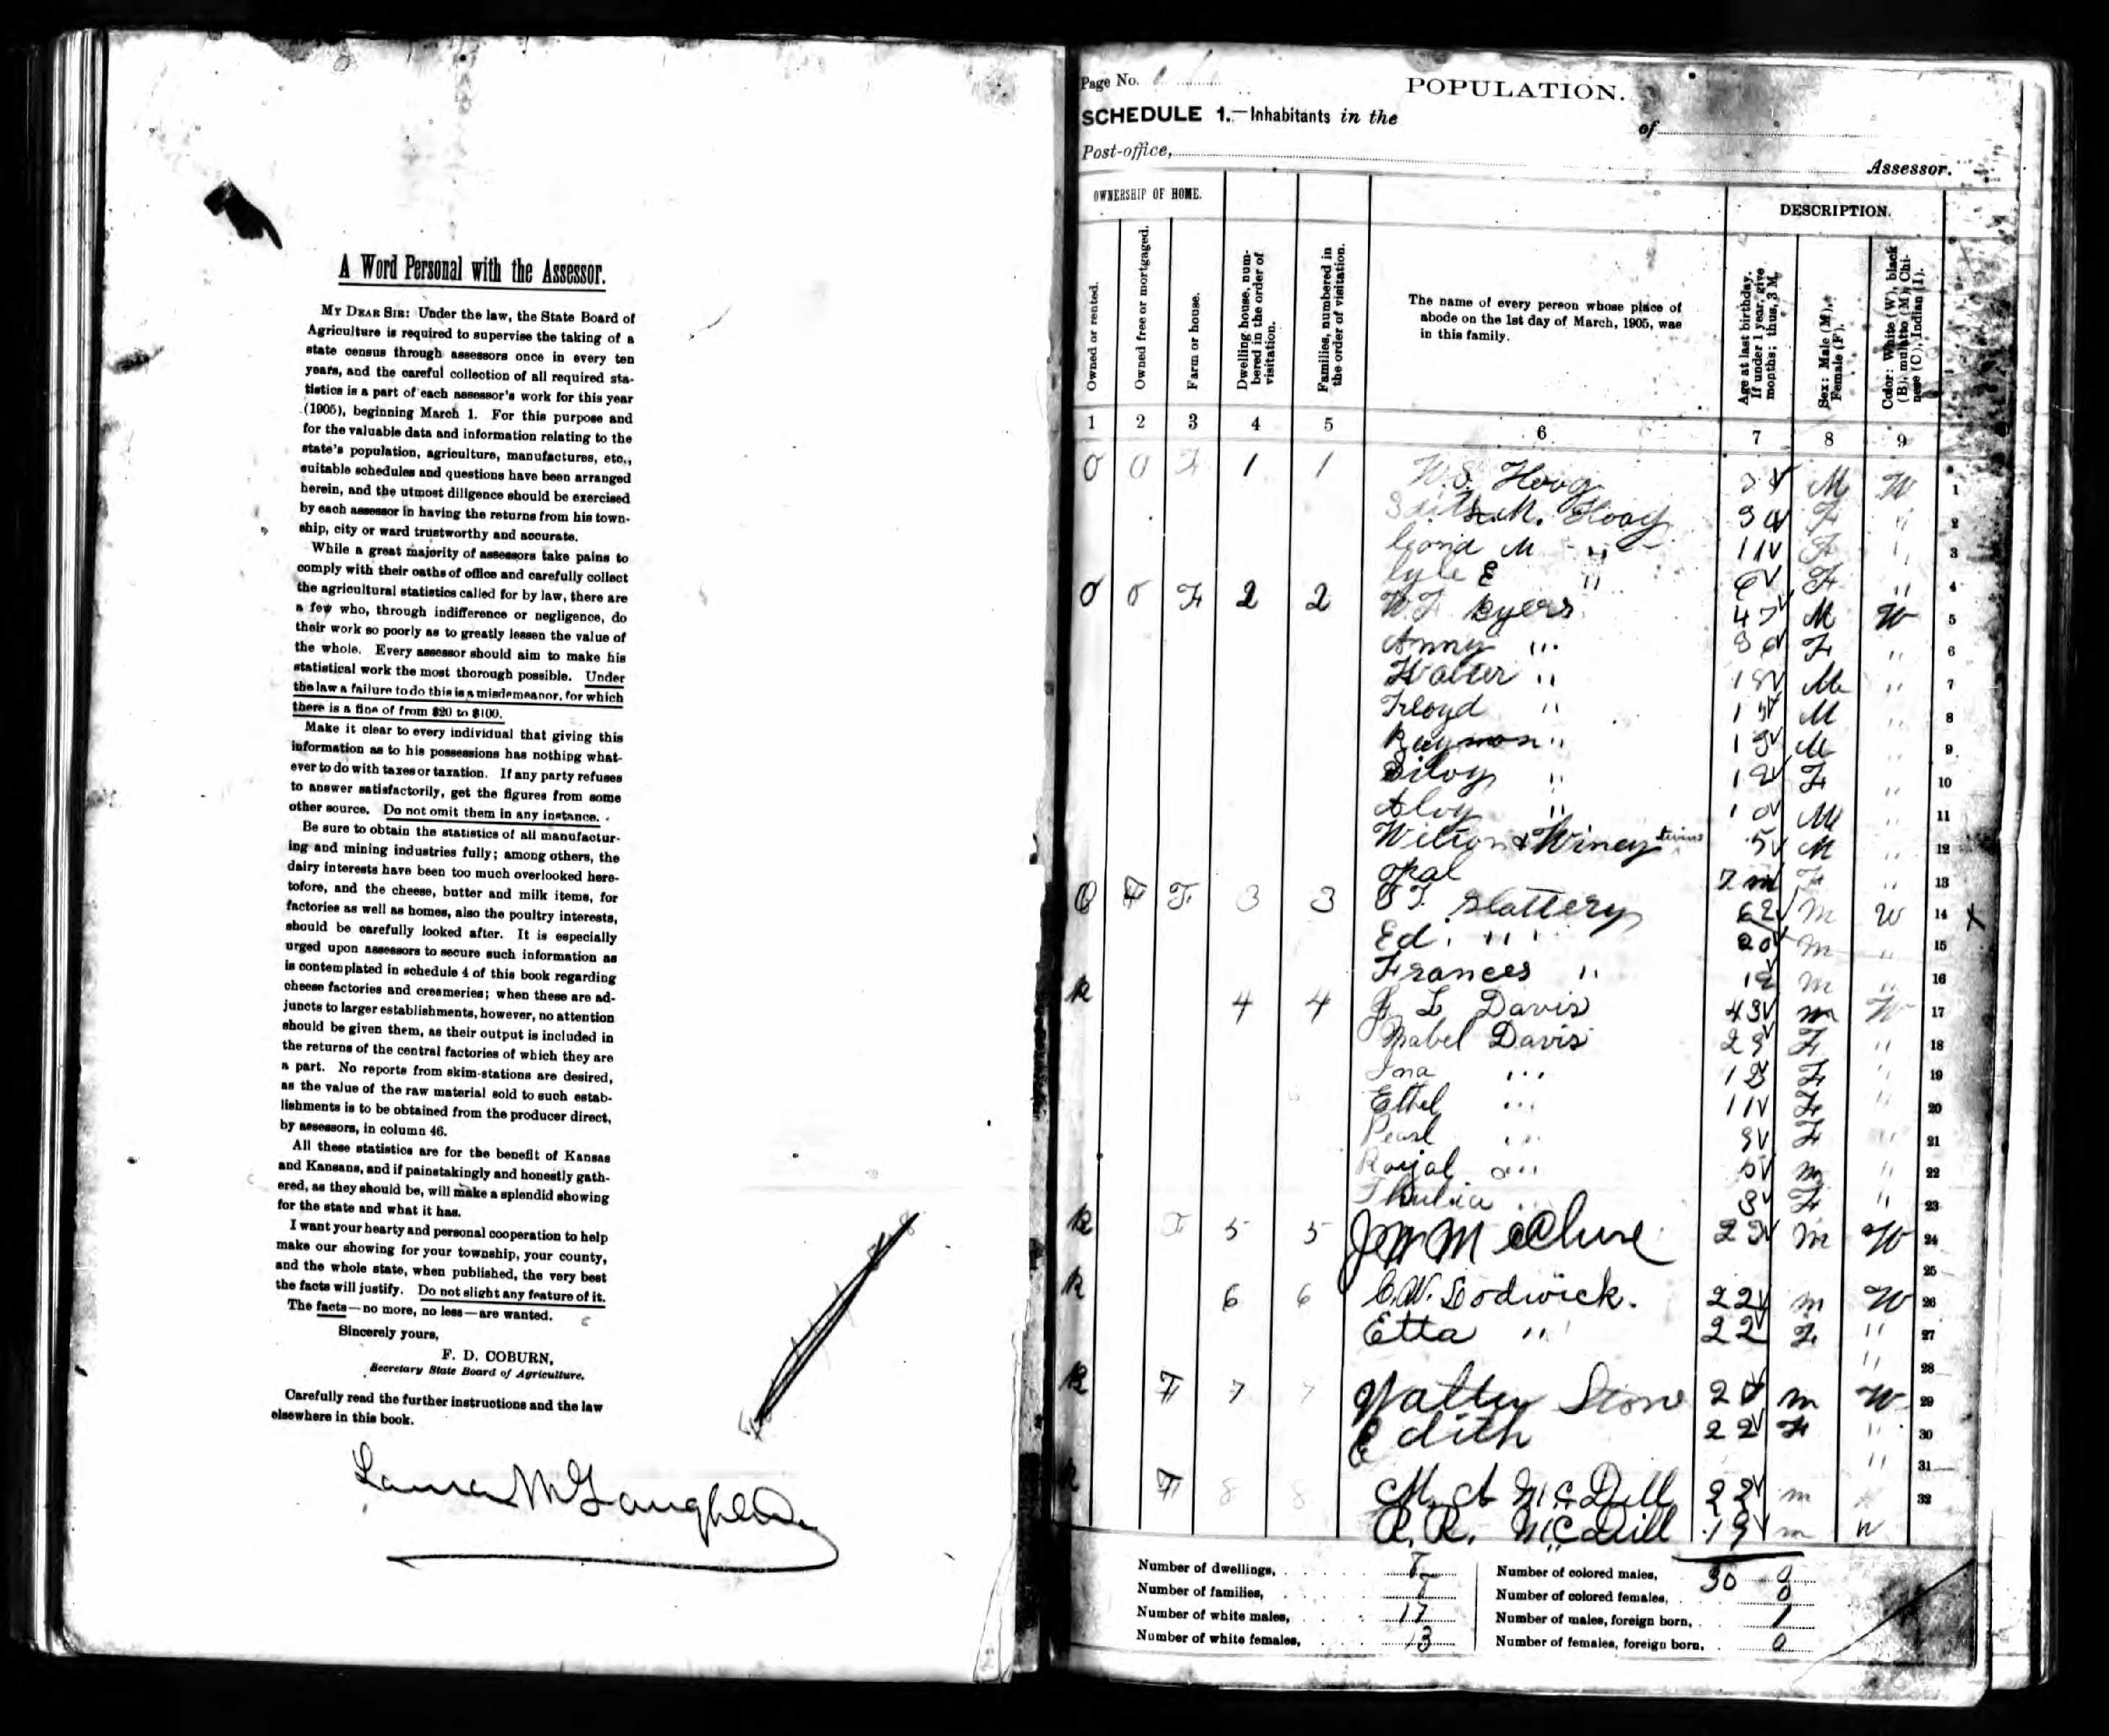 A Word Personal with the Assessor.
MY DEAR SIR: Under the law, the State Board of
Agriculture is required to supervise the taking of a
state census through assessors once in every ten
years, and the careful collection of all required sta-
tistics is a part of each assessor's work for this year
(1905), beginning March 1. For this purpose and
for the valuable data and information relating to the
state's population, agriculture, manufactures, etc.,
suitable schedules and questions have been arranged
herein, and the utmost diligence should be exercised
by each assessor in having the returns from his town-
ship, city or ward trustworthy and accurate.
While a great majority of assessors take pains to
comply with their oaths of office and carefully collect
the agricultural statistics called for by law, there are
a few who, through indifference or negligence, do
their work so poorly as to greatly lessen the value of
the whole. Every assessor should aim to make his
statistical work the most thorough possible. Under
the law a failure to do this is a misdemeanor, for which
there is a fine of from $20 to $100.
Make it clear to every individual that giving this
information as to his possessions has nothing what-
ever to do with taxes or taxation. If any party refuses
to answer satisfactorily, get the figures from some
other source. Do not omit them in any instance.
Be sure to obtain the statistics of all manufactur-
ing and mining industries fully; among others, the
dairy interests have been too much overlooked here-
tofore, and the cheese, butter and milk items, for
factories as well as homes, also the poultry interests,
should be carefully looked after. It is especially
urged upon assessors to secure such information as
is contemplated in schedule 4 of this book regarding
cheese factories and creameries; when these are ad-
juncts to larger establishments, however, no attention
should be given them, as their output is included in
the returns of the central factories of which they are
a part. No reports from skim-stations are desired,
as the value of the raw material sold to such estab-
lishments is to be obtained from the producer direct,
by assessors, in column 46.
All these statistics are for the benefit of Kansas
and Kansans, and if painstakingly and honestly gath-
ered, as they should be, will make a splendid showing
for the state and what it has.
I want your hearty and personal cooperation to help
make our showing for your township, your county,
and the whole state, when published, the very best
the facts will justify. Do not slight any feature of it.
The facts—no more, no less—are wanted.
Sincerely yours,
F. D. COBURN,
Secretary State Board of Agriculture.
Carefully read the further instructions and the law
elsewhere in this book.
Page No.
POPULATION.
SCHEDULE 1.—Inhabitants in the
of
Post-office,
Assessor.
OWNERSHIP OF HOME.
DESCRIPTION.
Owned or rented.
Owned free or mortgaged.
Farm or house.
Dwelling house, num-
bered in the order of
visitation.
Families, numbered in
the order of visitation.
The name of every person whose place of
abode on the 1st day of March, 1905, was
in this family.
Age at last birthday.
If under 1 year, give
months; thus, 3 M.
Sex: Male (M),
Female (F).
Color: White (W), black
(B), mulatto (M), Chi-
nese (C), Indian (I).
1 2 3 4 5 6 7 8 9
O O F 1 1 W.S. Hoog M W 1
M. Hoag F " 2
M " 11 F " 3
Lyle E " 6 F " 4
O O F 2 2 W F Byers 47 M W 5
Anny " F " 6
Walter " 18 M " 7
Floyd " M " 8
Raymon " 13 M " 9
" 12 F " 10
Aloy " 10 M " 11
Wilton & Winey twins 5 M " 12
Opal 7 m F " 13
O F F 3 3 Slattery 62 M W 14 X
Ed. " 20 m " 15
Frances " m " 16
R 4 4 J L Davis 43 m W 17
Mabel Davis 29 F " 18
Ina " 13 F " 19
Ethel " 11 F " 20
Pearl " 9 F " 21
Royal " 5 m " 22
" 3 F " 23
R F 5 5 J W McClure 23 m W 24
25
R 6 6 C.W. Lodwick. 22 m W 26
Etta " 22 F " 27
" 28
R F 7 7 Walter Stone m W 29
Edith 22 F " 30
" 31
R F 8 8 M. A McDill 22 m 32
R. R. McDill 19 m W
Number of dwellings, 8
Number of families, 8
Number of white males, 17
Number of white females, 13
30
Number of colored males, 0
Number of colored females, 0
Number of males, foreign born, 1
Number of females, foreign born, 0